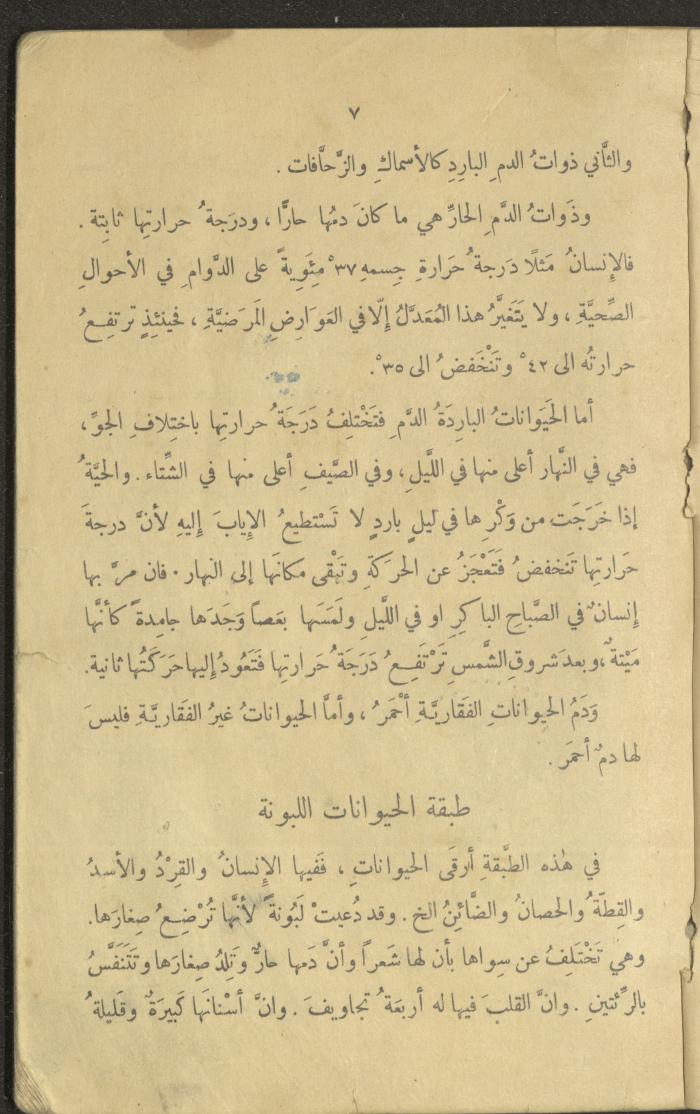 ٧
والثَّاني ذواتُ الدمِ البارِدِ كالأسماكِ والزَّحَّافات .
وذَواتُ الدَّمِ الحارِّ هي ما كانَ دمُها حارًّا ، ودرَجةُ حرارتِها ثابِتة .
فالإنسانُ مَثلًا دَرجةُ حَرارةِ جِسمهِ ٣٧° مِئَويةً على الدَّوامِ في الأحوالِ
الصِّحيَّةِ ، ولا يَتَغيَّرُ هذا المُعَدَّلُ إلّا في العَوَارِضِ المَرَضيَّةِ ، فحينئِذٍ ترتفِعُ
حرارتُه الى ٤٢° وتَنْخَفضُ الى ٣٥°.
أما الحَيَوَاناتُ البارِدَةُ الدَّمِ فتَخْتلِفُ دَرَجَةُ حرارتِها باختِلافِ الجوِّ ،
فهي في النَّهار أعلى منها في اللَّيلِ ، وفي الصَّيفِ أعلى منها في الشِّتاء . والحيَّةُ
إذا خَرَجَت من وَكْرِها في ليلٍ باردٍ لا تَسْتطيعُ الإيابَ إليهِ لأنَّ درجةَ
حَرارتِها تَنخفضُ فتَعْجَزُ عن الحرَكةِ وتَبْقى مكانَها إلى النهار . فان مرَّ بها
إنسانٌ في الصَّباحِ الباكِرِ او في اللَّيلِ ولَمَسَها بعَصاً وَجَدَها جامِدةً كأنَّها
مَيْتةٌ ، وبعدَ شروقِ الشَّمسِ تَرْتَفِعُ دَرَجَةُ حَرارتِها فتَعودُ إليها حَرَكَتُها ثانية.
وَدَمُ الحيواناتِ الفَقَاريَّةِ أحْمَرُ ، وأمَّا الحيواناتُ غيرُ الفَقاريَّةِ فليسَ
لها دمٌ أحمَر .
طبقة الحيوانات اللبونة
في هٰذه الطَّبقةِ أرقَى الحيواناتِ ، ففيها الإنسانُ والقِرْدُ والأسدُ
والقِطّةُ والحصانُ والضَّائِنُ الخ . وقد دُعيتْ لَبُونةً لأنَّها تُرْضِعُ صِغارَها.
وهيَ تَخْتَلِفُ عن سِواها بأن لها شَعراً وأنَّ دَمها حارٌّ وتَلِدُ صِغارَها وتَتَنَفَّسُ
بالرِّئتينِ . وانَّ القلبَ فيها له أربعَةُ تجاويفَ . وانَّ أسْنانَها كَبيرَةٌ وقَليلةُ